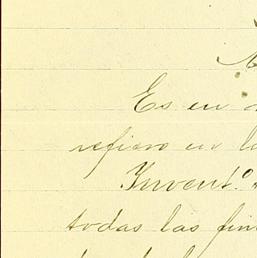 Es en
refiero en l
Invent.º
todas las fin